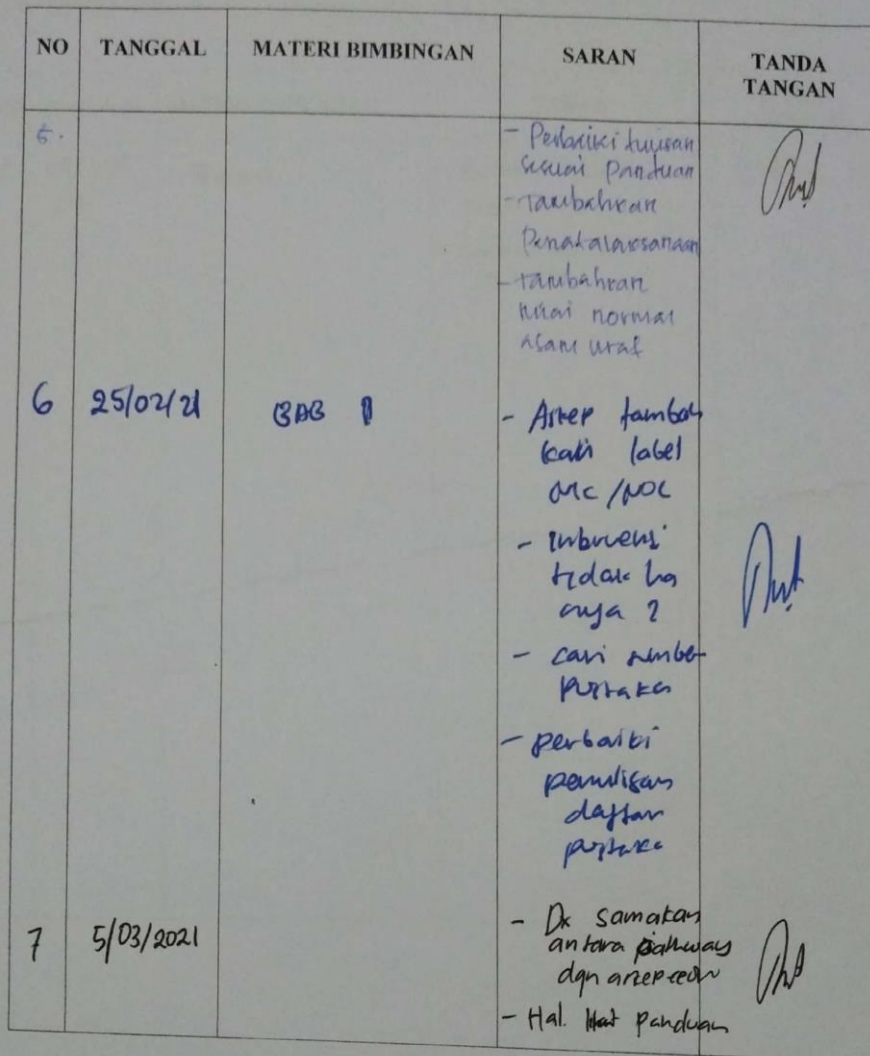 NO TANGGAL MATERI BIMBINGAN SARAN TANDA
TANGAN
5.
- Perbaiki tujuan
sesuai Panduan
- Tambahkan
Penatalaksanaan
- tambahkan
nilai normal
asam urat
6 25/02/21 BAB
- Askep tambah
kan label
NIC/NOC
- Intervensi
tidak ha
nya 2
- cari sumber
pustaka
- perbaiki
penulisan
daftar
pustaka
7 5/03/2021
- Dx samakan
antara pathway
dgn
- Hal. lihat panduan